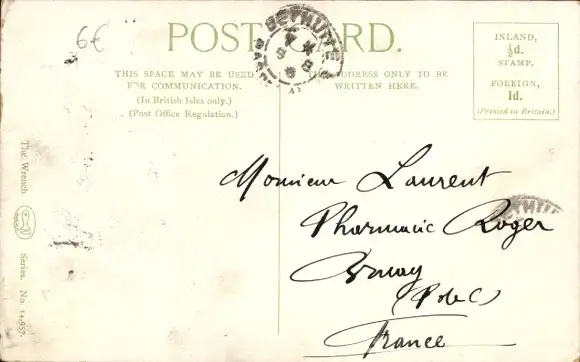 6€
POST CARD.
BETHUNE
THIS SPACE MAY BE USED
FOR COMMUNICATION.
(In British Isles only.)
(Post Office Regulation.)
THE ADDRESS ONLY TO BE
WRITTEN HERE.
INLAND,
½d.
STAMP,
FOREIGN,
1d.
(Printed in Britain.)
The Wrench
Series. No. 14,957.
Monsieur Laurent
Pharmacie Roger
(P de C)
France